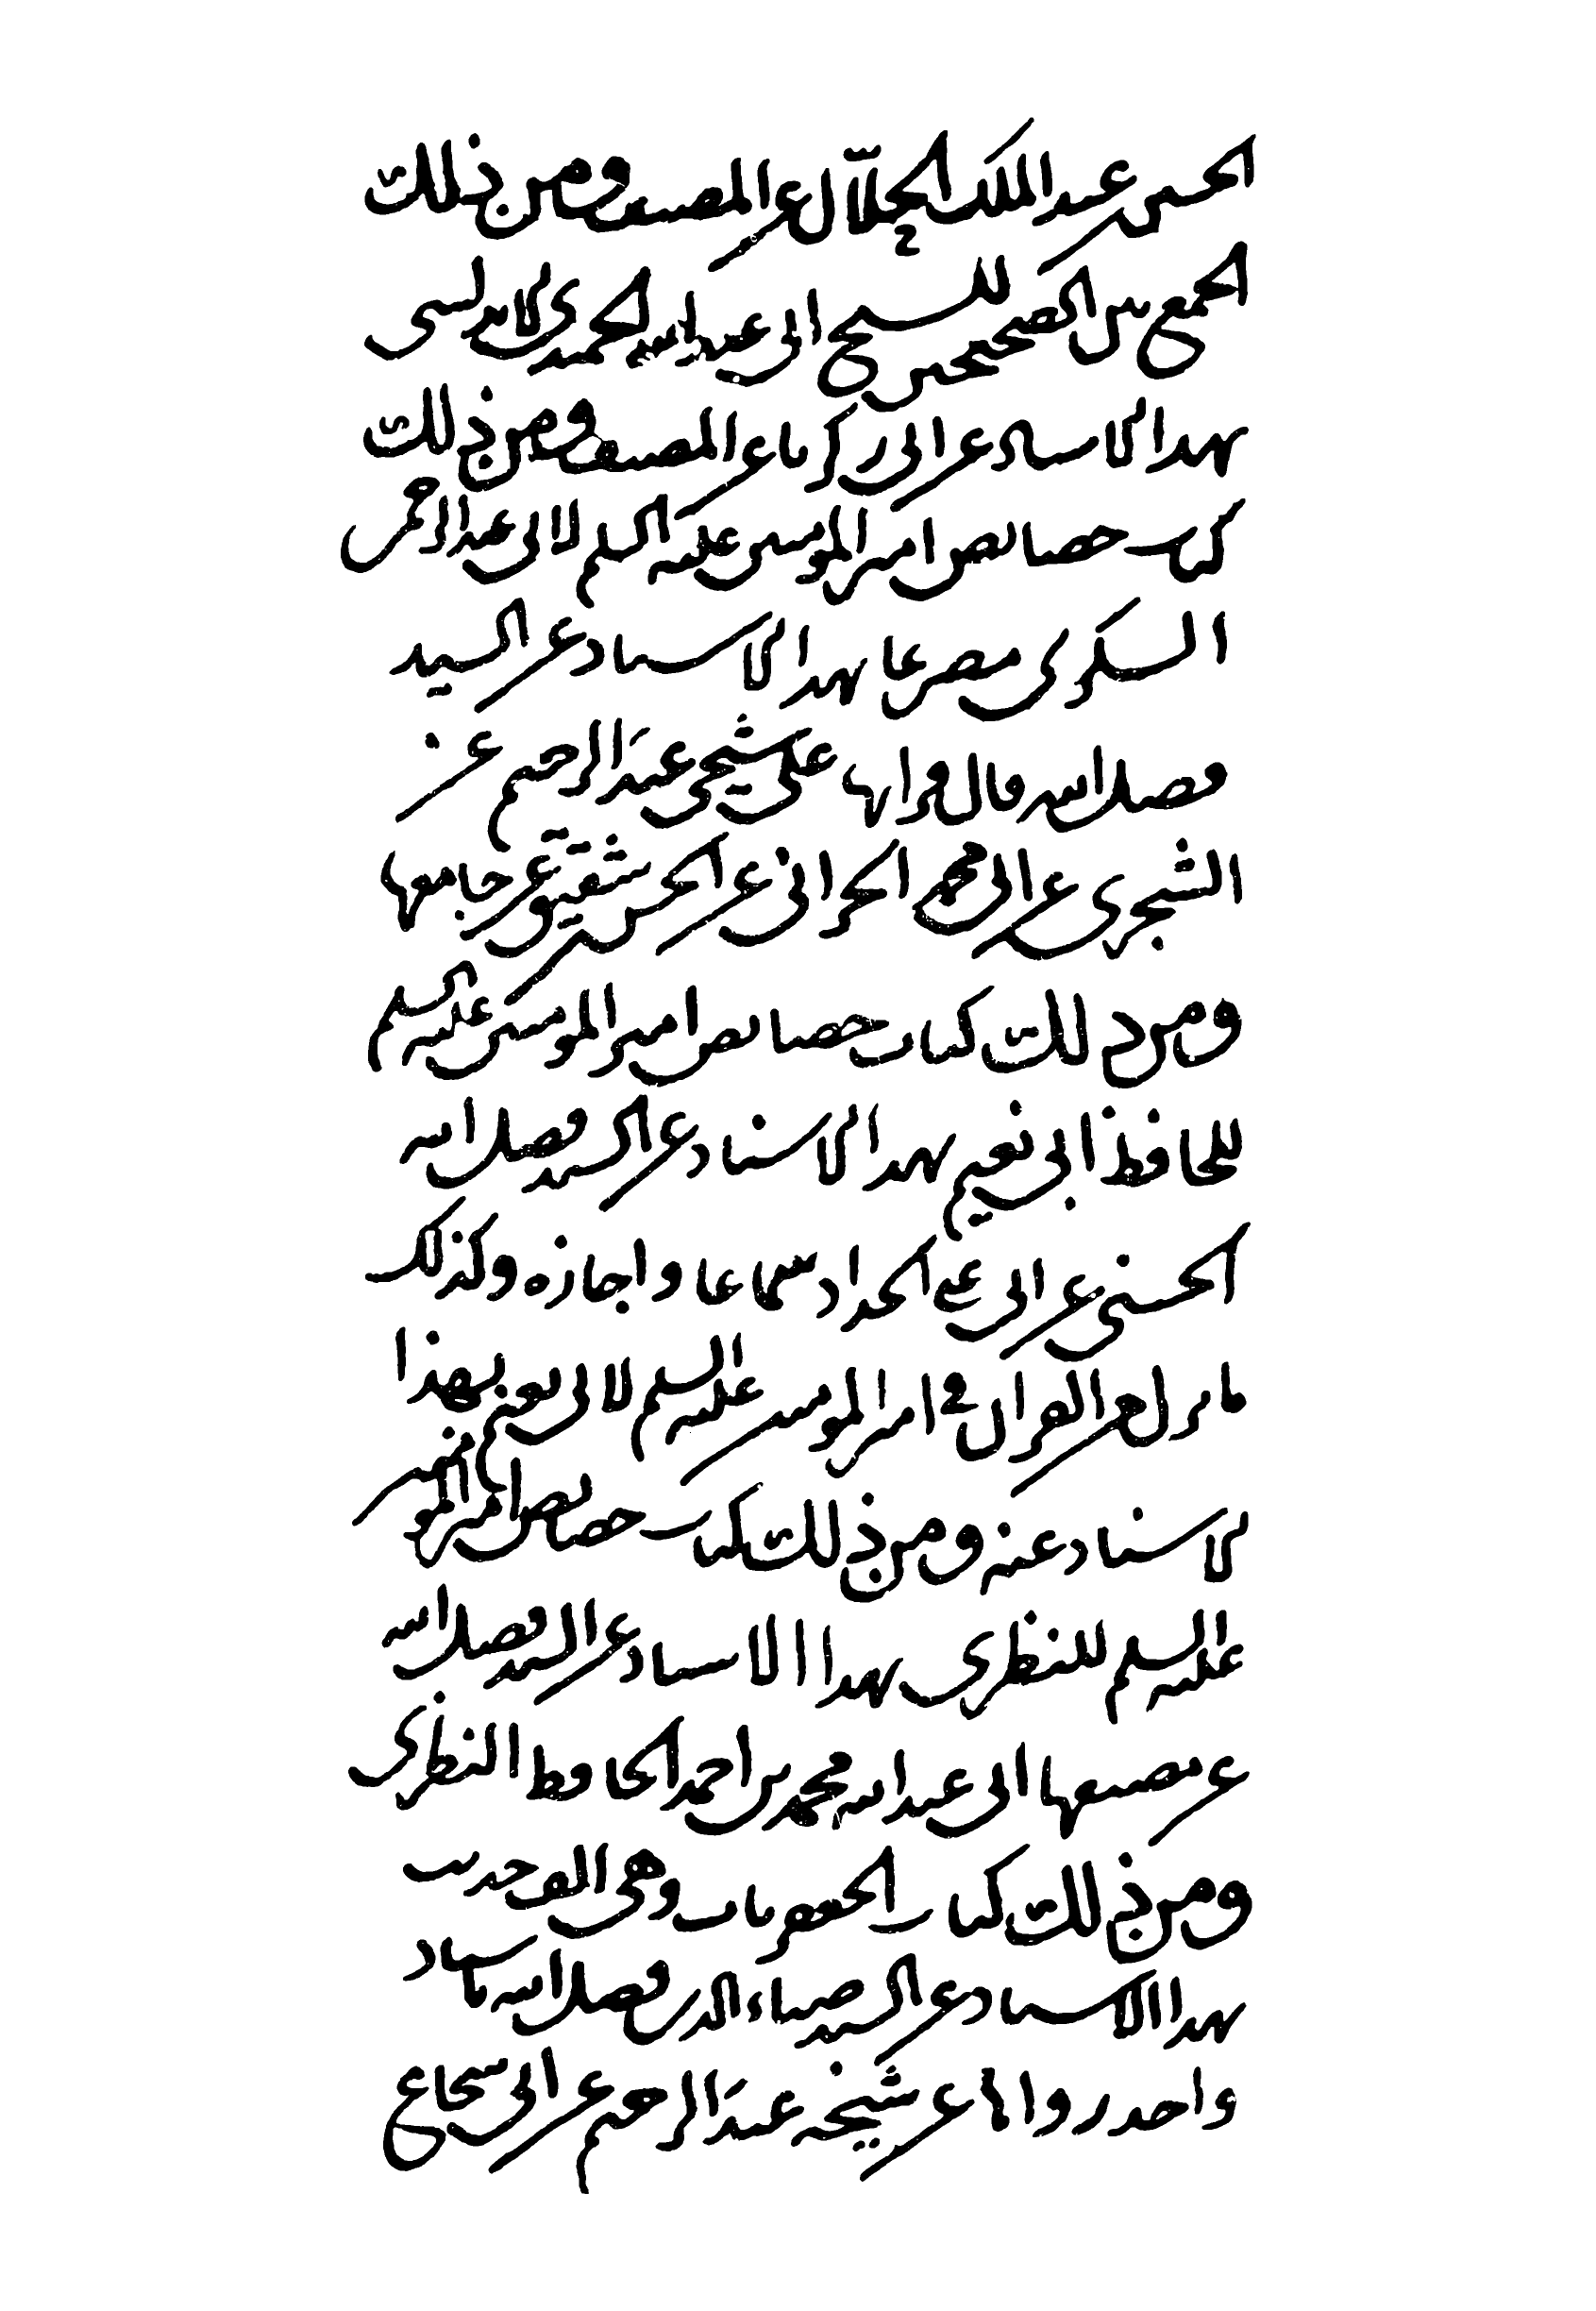 الحسين عبد الملك الخلّال عن المصنف ومن ذلك
الجمع بين الصحيحين للشيخ ابي عبد الله الحميدي الاندلسي
بهذا الاسناد عن ابي زكريا عن المصنف ومن ذلك
كتاب خصائص امير المؤمنين عليه السلم لابي عبد الرحمن
السكري مصرعا بهذا الاسناد عن السيد
فضل الله قال قراتها على شيخي عبد الرحيم عن
الشجري عن ابي محمد الحراني عن الحسن شقيق عن جامعها
ومن ذلك كتاب خصائص امير المؤمنين عليه السلم
للحافظ ابي نعيم بهذا الاسناد عن السيد فضل الله
الحسني عن ابي علي الحداد سماعا واجازه وكذلك
ما نزل من القران في امير المؤمنين عليه السلم لابي نعيم بهذا
الاسناد عنه ومن ذلك كتاب خصائص امير المؤمنين
عليه السلم للنطنزي بهذا الاسناد عن السيد فضل الله
عن مصنفها ابي عبد الله محمد بن احمد الحافظ النطنزي
ومن ذلك كتاب الجعفريات وهي الف حديث
بهذا الاسناد عن السيد ضياء الدين فضل الله باسناد
واحد رواها عن شيخه عبد الرحيم عن ابي شجاع